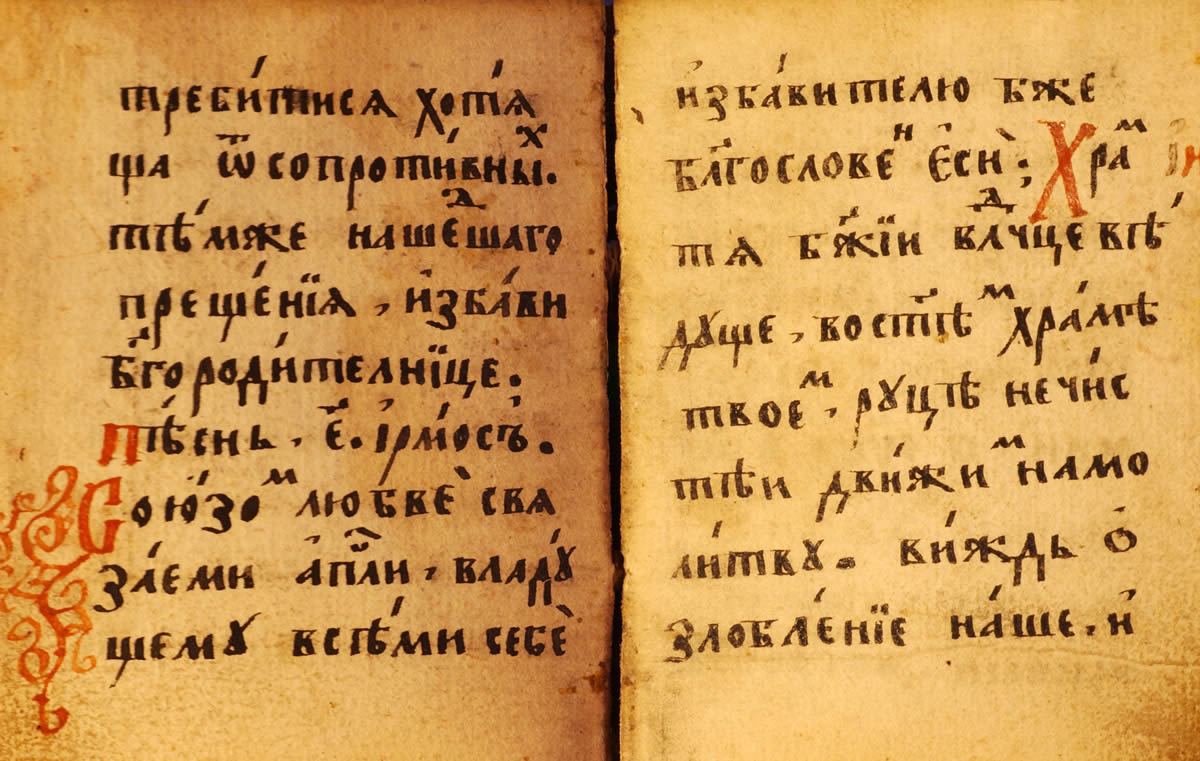 треби́тисѧ хотѧ́
ща ѿ сопроти́вныⷯ.
тѣ́мже наше́дшаго
преще́нїѧ, и҆зба́ви
бг҃ороди́телнїце.
пѣ́снь, є҃. і҆рмо́съ.
Сою́зоⷨ любвѐ свѧ
за́еми а҆пⷭ҇ли, владꙋ́
щемꙋ всѣ́ми себѐ
и҆зба́вителю бж҃е
блг҃ословеⷩ҇ є҆сѝ: Храⷨ
тѧ бж҃їи влⷣчце вѣ́
дꙋще, востѣ́ⷨ хра́мѣ
твоеⷨ, рꙋцѣ нечи́с
тѣи дви́жиⷨ на мо
ли́твꙋ. ви́ждь ѻ҆
злобле́нїе на́ше, и҆